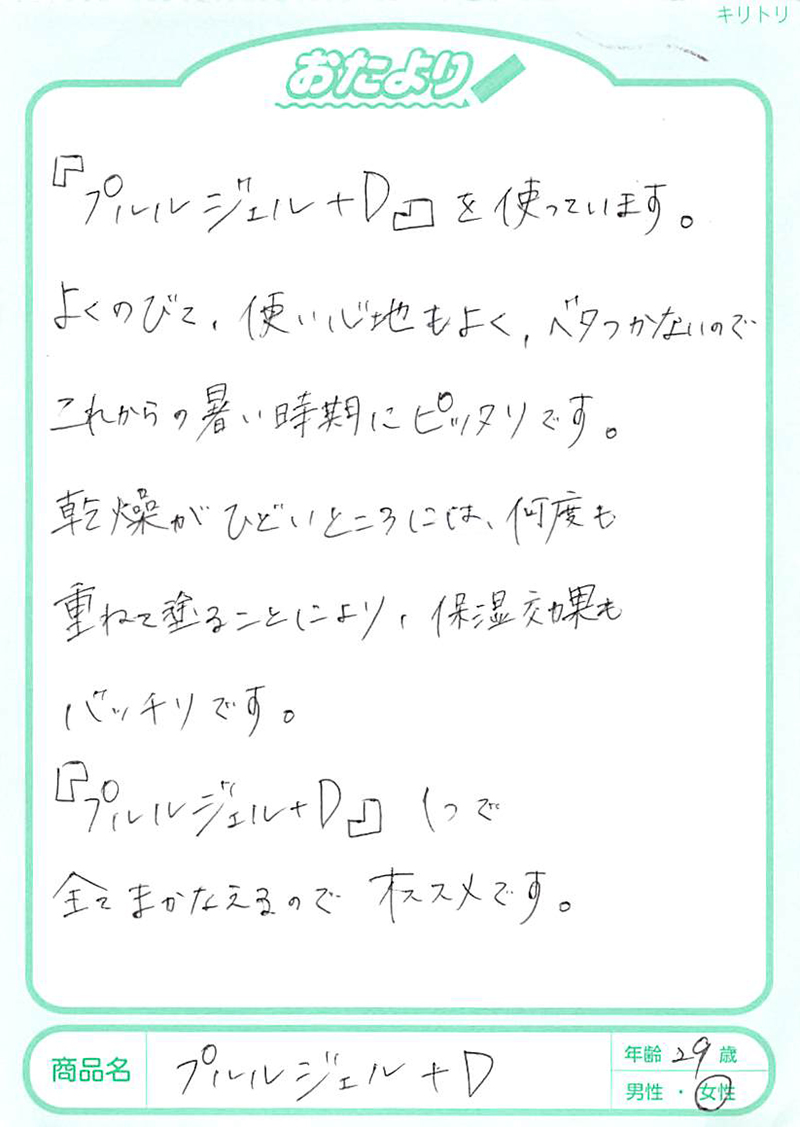 キリトリ
おたより
『プルルジェル+D』を使っています。
よくのびて、使い心地もよく、ベタつかないので
これからの暑い時期にピッタリです。
乾燥がひどいところには、何度も
重ねて塗ることにより、保湿効果も
バッチリです。
『プルルジェル+D』1つで
全てまかなえるので オススメです。
商品名 プルルジェル+D 年齢 29 歳
男性・女性